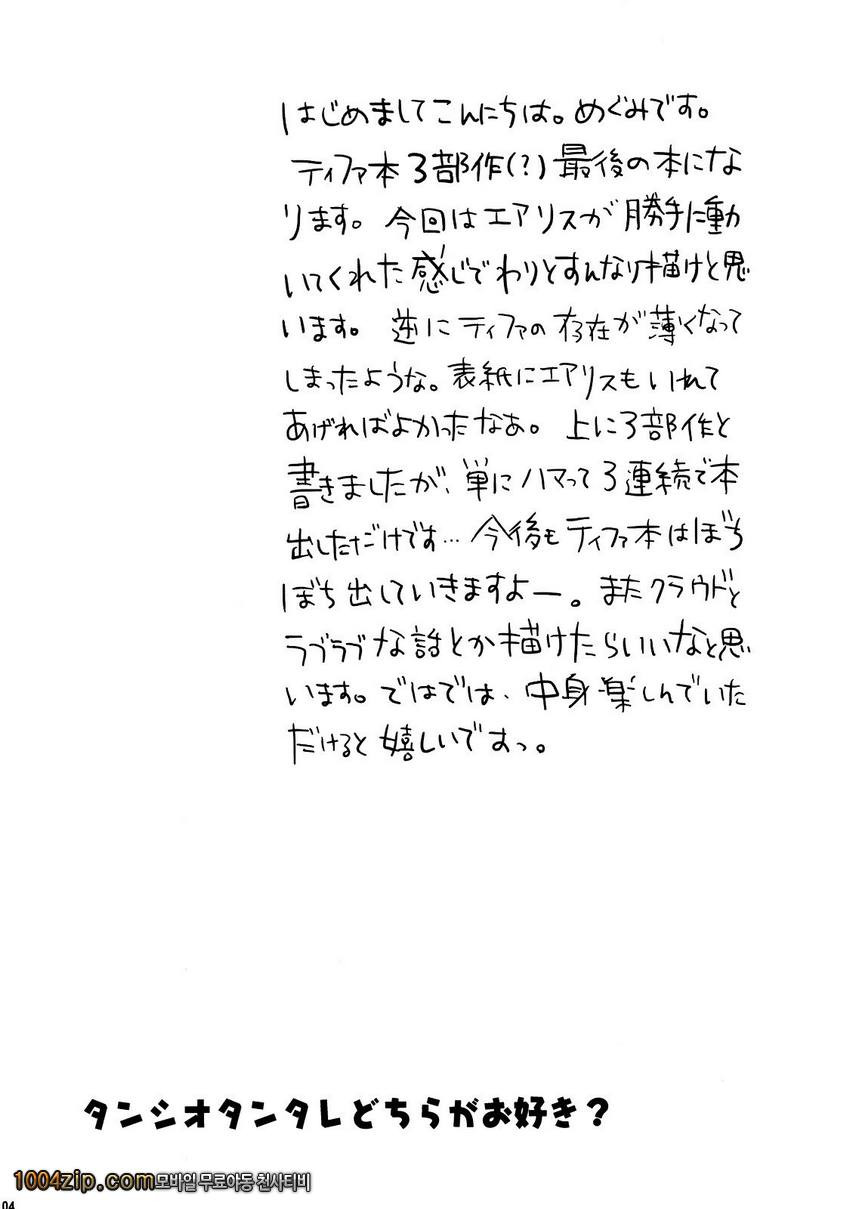 はじめましてこんにちは。めぐみです。
ティファ本3部作(?)最後の本にな
ります。今回はエアリスが勝手に動
いてくれた感じでわりとすんなり描けと思
います。逆にティファの存在が薄くなって
しまったような。表紙にエアリスもいれて
あげればよかったなぁ。上に3部作と
書きましたが、単にハマって3連続で本
出しただけです…今後もティファ本はぼち
ぼち出していきますよー。またクラウドと
ラブラブな話とか描けたらいいなと思
います。ではでは、中身楽しんでいた
だけると嬉しいですっ。
タンシオタンタレどちらがお好き?
1004zip.com 모바일 무료야동 천사티비
04